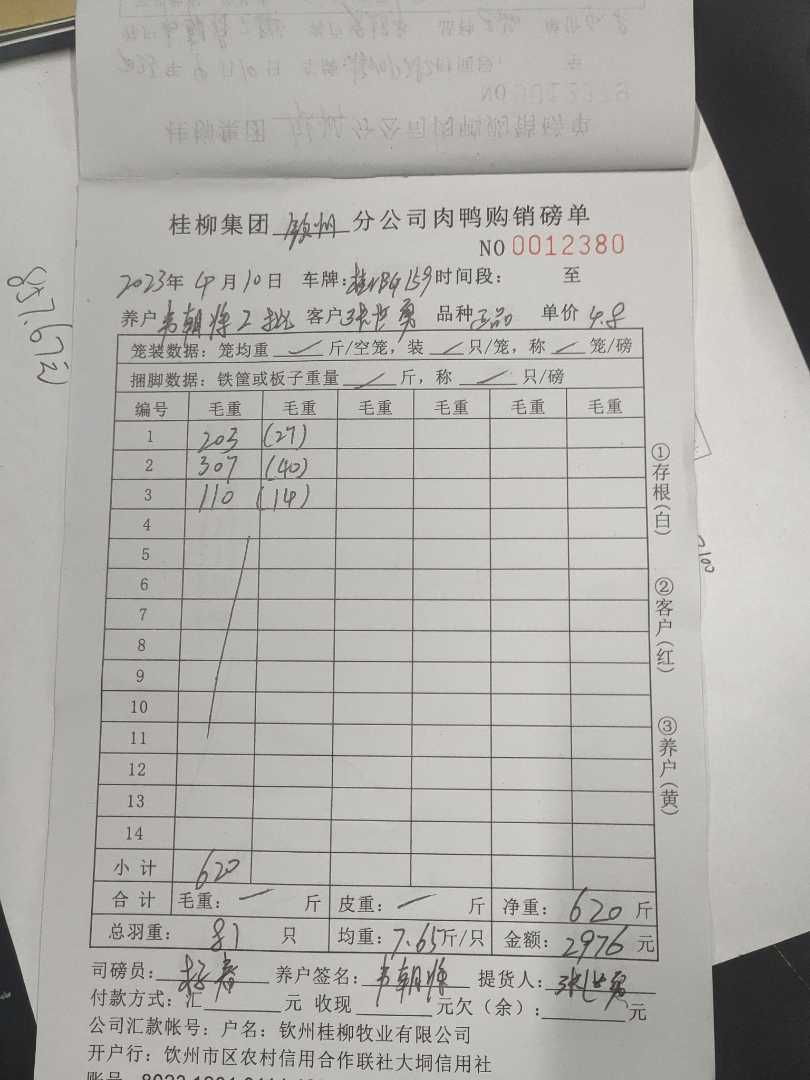 桂柳集团 钦州 分公司肉鸭购销磅单
NO 0012380
2023年 4月10日 车牌: 时间段: 至
养户 韦朝 2批 客户 张世勇 品种 正品 单价 4.8
笼装数据：笼均重 斤/空笼，装 只/笼，称 笼/磅
捆脚数据：铁筐或板子重量 斤，称 只/磅
编号 毛重 毛重 毛重 毛重 毛重 毛重
1 203 (27)
2 307 (40)
3 110 (14)
4
5
6
7
8
9
10
11
12
13
14
小计 620
合计 毛重： 斤 皮重： 斤 净重： 620 斤
总羽重： 81 只 均重： 7.65 斤/只 金额： 2976 元
司磅员： 养户签名： 韦朝 提货人： 张世勇
付款方式：汇 元 收现 元欠（余）： 元
公司汇款帐号：户名：钦州桂柳牧业有限公司
开户行：钦州市区农村信用合作联社大垌信用社
①存根(白)
②客户(红)
③养户(黄)
857.67元